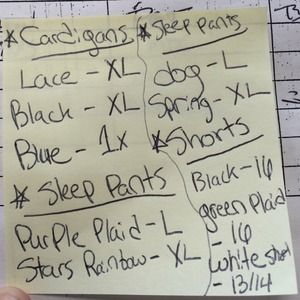 * Cardigans
Lace - XL
Black - XL
Blue - 1x
* Sleep Pants
Purple Plaid - L
Stars Rainbow - XL
* Sleep Pants
dog - L
Spring - XL
* Shorts
Black - 16
green Plaid
- 16
white short
- 13/14